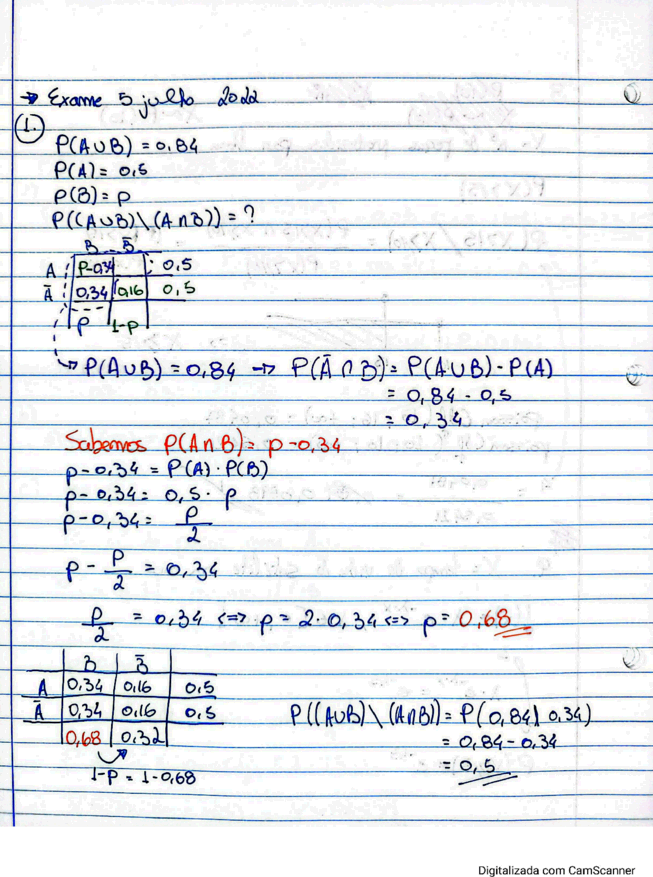 → Exame 5 julho 2022
1.
P(A∪B) = 0,84
P(A) = 0,5
P(B) = p
P((A∪B)\(A∩B)) = ?
B B̄
A p-0,34 0,5
Ā 0,34 0,16 0,5
p 1-p
↳ P(A∪B) = 0,84 → P(Ā∩B) = P(A∪B) - P(A)
= 0,84 - 0,5
= 0,34
Sabemos P(A∩B) = p-0,34
p-0,34 = P(A)·P(B)
p-0,34 = 0,5·p
p-0,34 = p/2
p - p/2 = 0,34
p/2 = 0,34 <=> p = 2·0,34 <=> p = 0,68
B B̄
A 0,34 0,16 0,5
Ā 0,34 0,16 0,5
0,68 0,32
1-P = 1-0,68
P((A∪B)\(A∩B)) = P(0,84\0,34)
= 0,84-0,34
= 0,5
Digitalizada com CamScanner